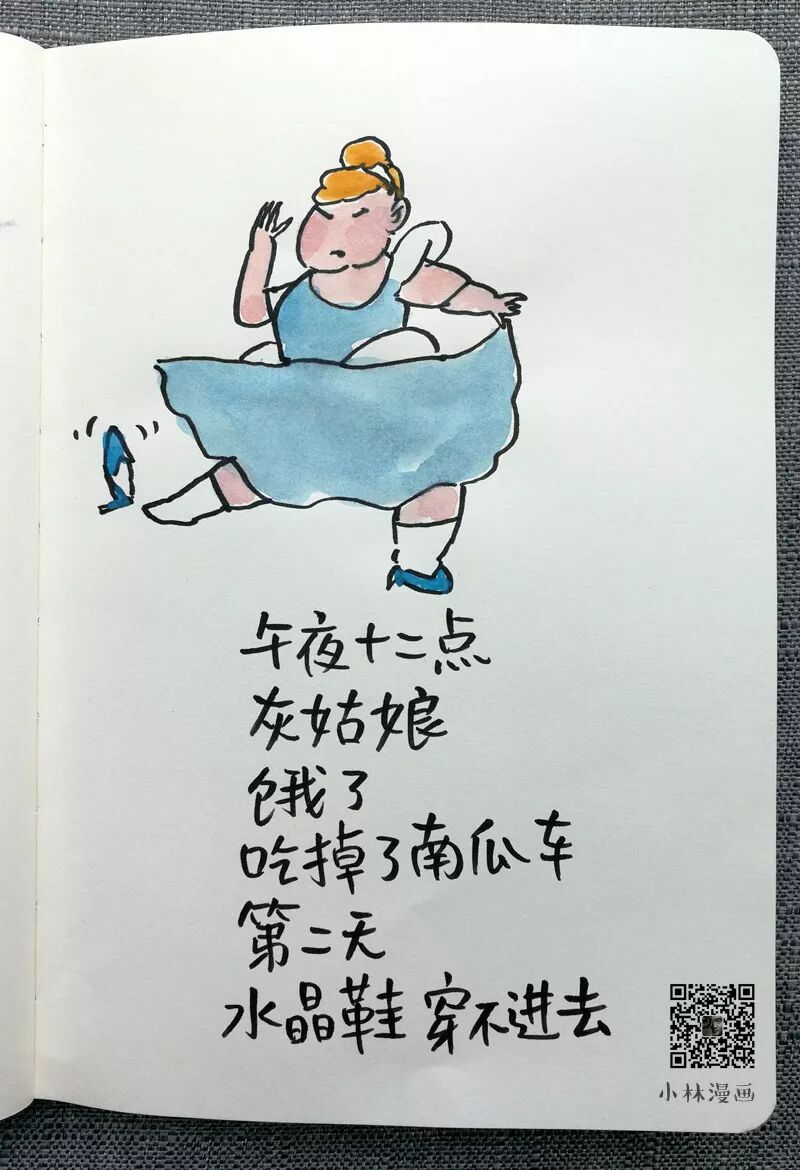 午夜十二点
灰姑娘
饿了
吃掉了南瓜车
第二天
水晶鞋穿不进去
小林漫画